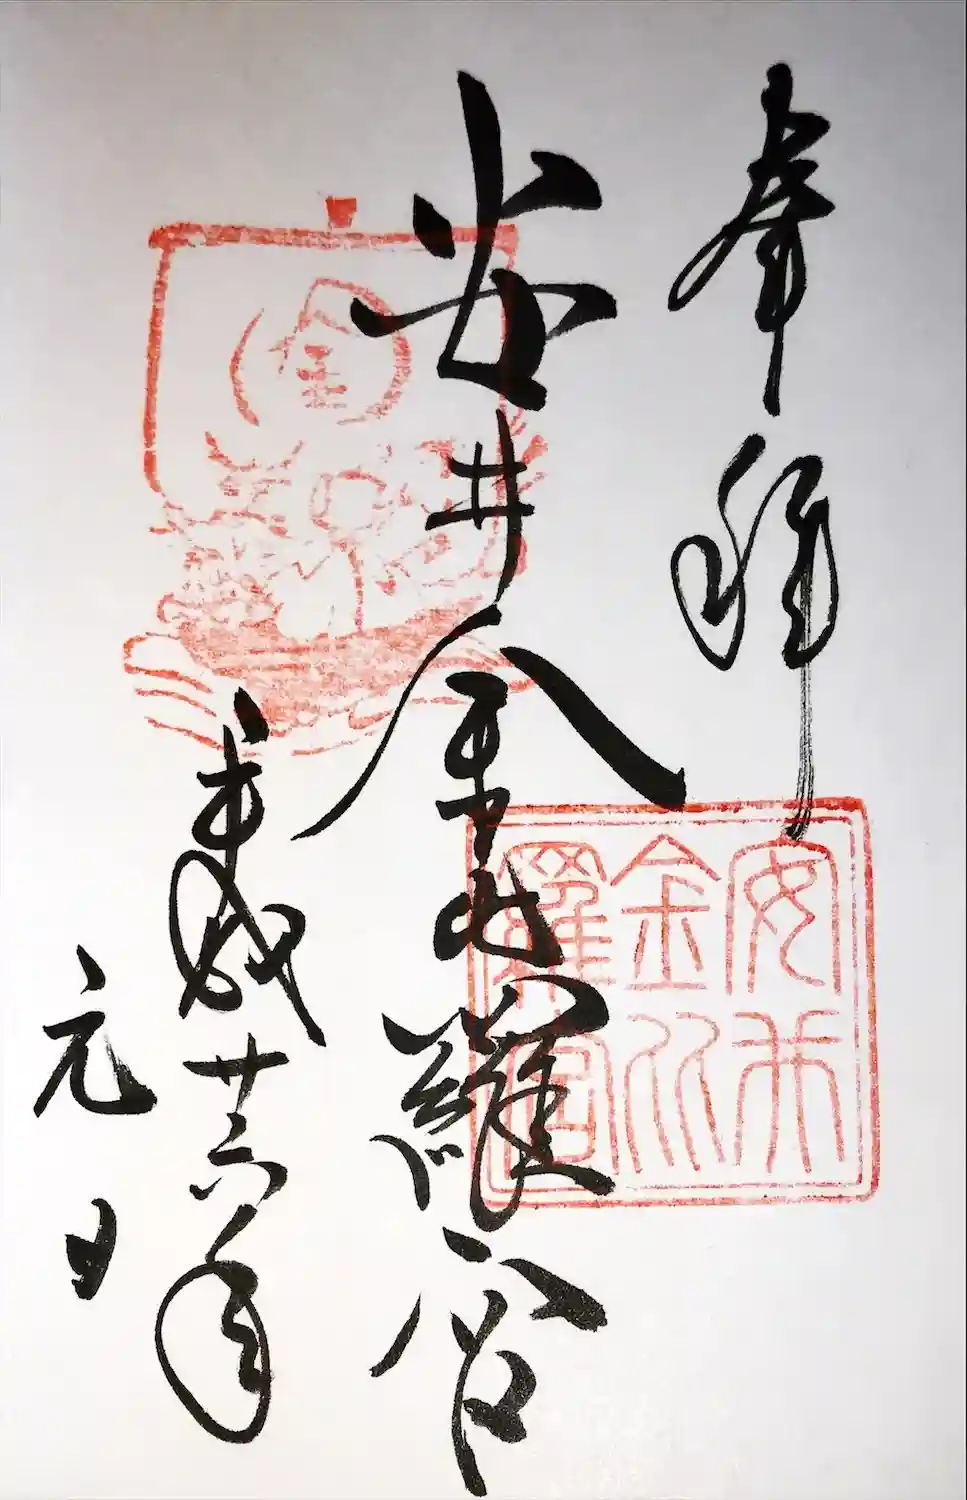 奉拝
安井金比羅宮
平成廿六年
元日
安井
金比
羅宮
金